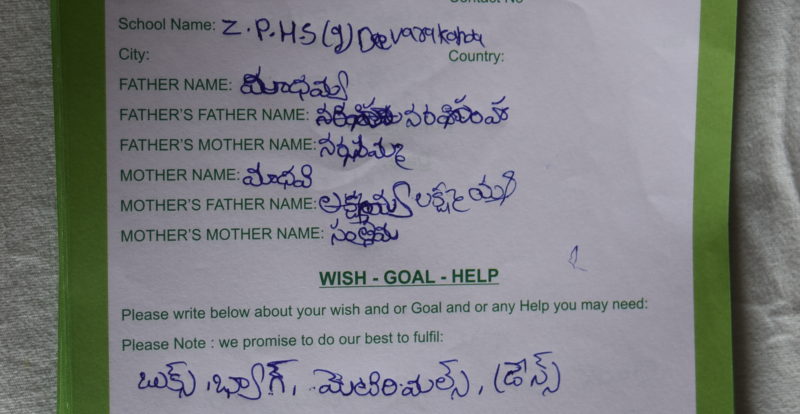 Contact No
School Name: Z.P.H.S (g) Devarakonda
City: Country:
FATHER NAME: మాధవయ్య
FATHER'S FATHER NAME: నరసింహ
FATHER'S MOTHER NAME: నర్సమ్మ
MOTHER NAME: మాధవి
MOTHER'S FATHER NAME: లక్ష్మయ్య
MOTHER'S MOTHER NAME:
WISH - GOAL - HELP
Please write below about your wish and or Goal and or any Help you may need:
Please Note : we promise to do our best to fulfil:
బుక్స్, బ్యాగ్, మెటిరియల్స్, డ్రౌన్స్